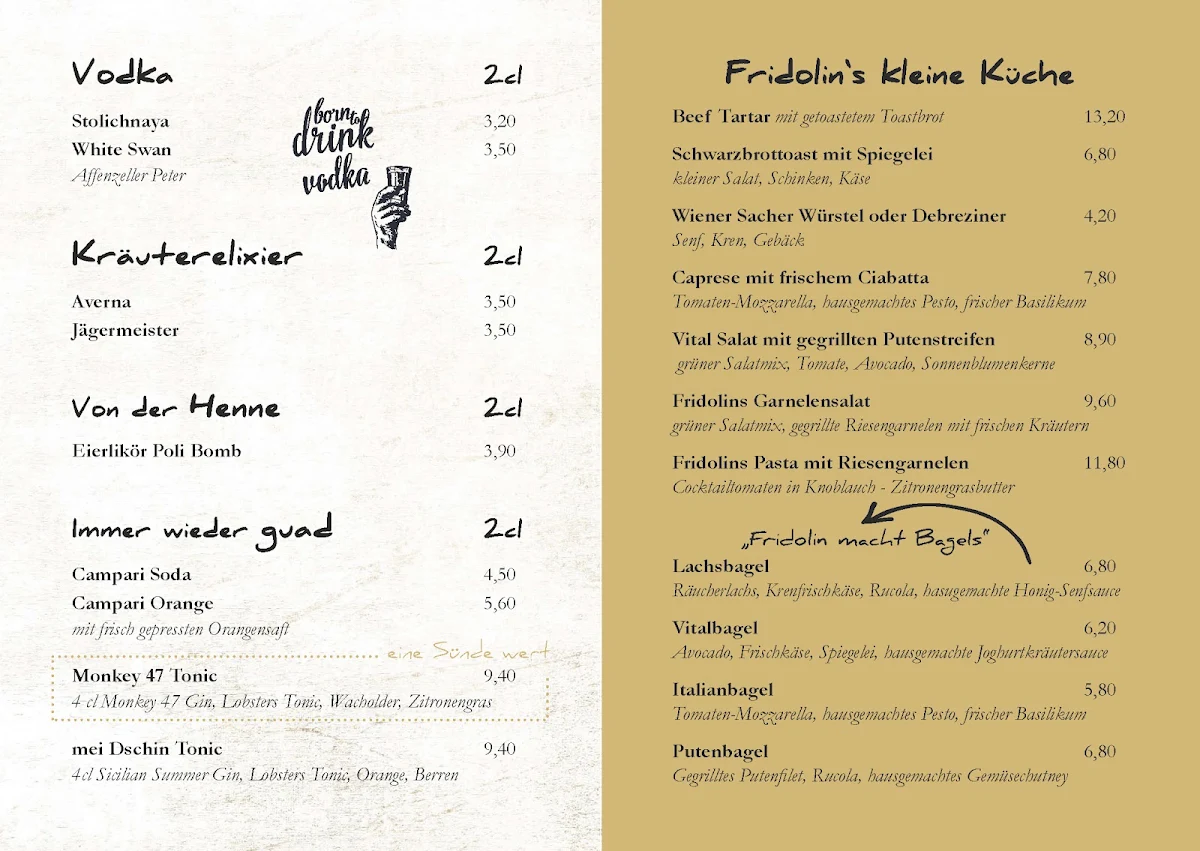 Vodka 2cl
Stolichnaya 3,20
White Swan 3,50
Affenzeller Peter
born to
drink
vodka
Kräuterelixier 2cl
Averna 3,50
Jägermeister 3,50
Von der Henne 2cl
Eierlikör Poli Bomb 3,90
Immer wieder guad 2cl
Campari Soda 4,50
Campari Orange 5,60
mit frisch gepressten Orangensaft
eine Sünde wert
Monkey 47 Tonic 9,40
4 cl Monkey 47 Gin, Lobsters Tonic, Wacholder, Zitronengras
mei Dschin Tonic 9,40
4cl Sicilian Summer Gin, Lobsters Tonic, Orange, Berren
Fridolin's kleine Küche
Beef Tartar mit getoastetem Toastbrot 13,20
Schwarzbrottoast mit Spiegelei 6,80
kleiner Salat, Schinken, Käse
Wiener Sacher Würstel oder Debreziner 4,20
Senf, Kren, Gebäck
Caprese mit frischem Ciabatta 7,80
Tomaten-Mozzarella, hausgemachtes Pesto, frischer Basilikum
Vital Salat mit gegrillten Putenstreifen 8,90
grüner Salatmix, Tomate, Avocado, Sonnenblumenkerne
Fridolins Garnelensalat 9,60
grüner Salatmix, gegrillte Riesengarnelen mit frischen Kräutern
Fridolins Pasta mit Riesengarnelen 11,80
Cocktailtomaten in Knoblauch - Zitronengrasbutter
„Fridolin macht Bagels"
Lachsbagel 6,80
Räucherlachs, Krenfrischkäse, Rucola, hasugemachte Honig-Senfsauce
Vitalbagel 6,20
Avocado, Frischkäse, Spiegelei, hausgemachte Joghurtkräutersauce
Italianbagel 5,80
Tomaten-Mozzarella, hausgemachtes Pesto, frischer Basilikum
Putenbagel 6,80
Gegrilltes Putenfilet, Rucola, hausgemachtes Gemüsechutney